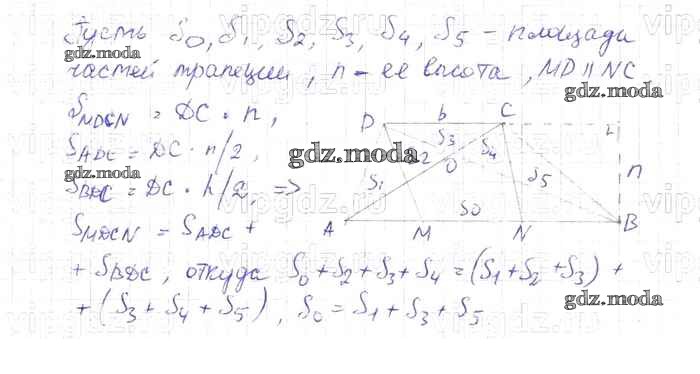 Пусть S₀, S₁, S₂, S₃, S₄, S₅ - площади
частей трапеции, h - ее высота, MD || NC
S_MDCN = DC · h,
S_ADC = DC · h/2,
S_BDC = DC · h/2, =>
S_MDCN = S_ADC +
+ S_BDC, откуда S₀ + S₂ + S₃ + S₄ = (S₁ + S₂ + S₃) +
+ (S₃ + S₄ + S₅), S₀ = S₁ + S₃ + S₅
D b C
S₃
S₂ O S₄
S₁ S₅ h
S₀
A M N B
gdz.moda
gdz.moda
gdz.moda
gdz.moda
gdz.moda
gdz.moda
gdz.moda
vipgdz.ru